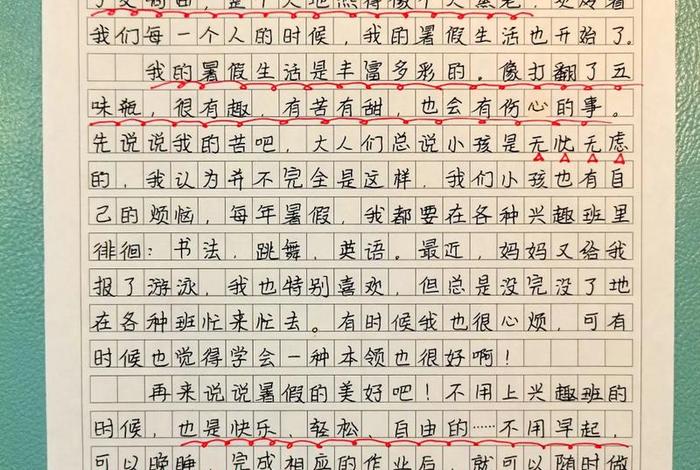 我们每一个人的时候，我的暑假生活也开始了。
我的暑假生活是丰富多彩的。像打翻了五
味瓶，很有趣，有苦有甜，也会有伤心的事。
先说说我的苦吧，大人们总说小孩是无忧无虑
的，我认为并不完全是这样，我们小孩也有自
己的烦恼，每年暑假，我都要在各种兴趣班里
徘徊：书法，跳舞，英语。最近，妈妈又给我
报了游泳，我也特别喜欢，但总是没完没了地
在各种班忙来忙去。有时候我也很心烦，可有
时候也觉得学会一种本领也很好啊！
再来说说暑假的美好吧！不用上兴趣班的
时候，也是快乐、轻松、自由的……不用早起，
可以晚睡，完成相应的作业后，就可以随时做